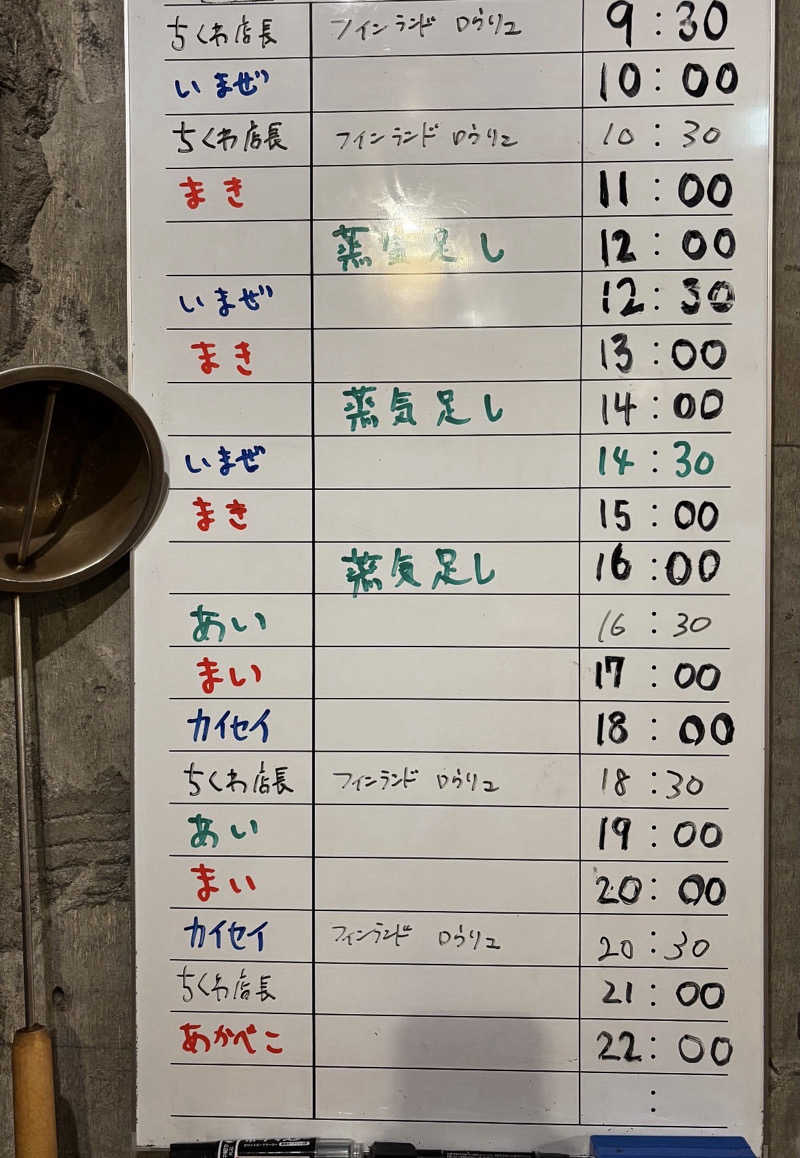 ちくわ店長 フィンランド ロウリュ 9:30
いまぜ 10:00
ちくわ店長 フィンランド ロウリュ 10:30
まき 11:00
蒸気足し 12:00
いまぜ 12:30
まき 13:00
蒸気足し 14:00
いまぜ 14:30
まき 15:00
蒸気足し 16:00
あい 16:30
まい 17:00
カイセイ 18:00
ちくわ店長 フィンランド ロウリュ 18:30
あい 19:00
まい 20:00
カイセイ フィンランド ロウリュ 20:30
ちくわ店長 21:00
あかべこ 22:00
: